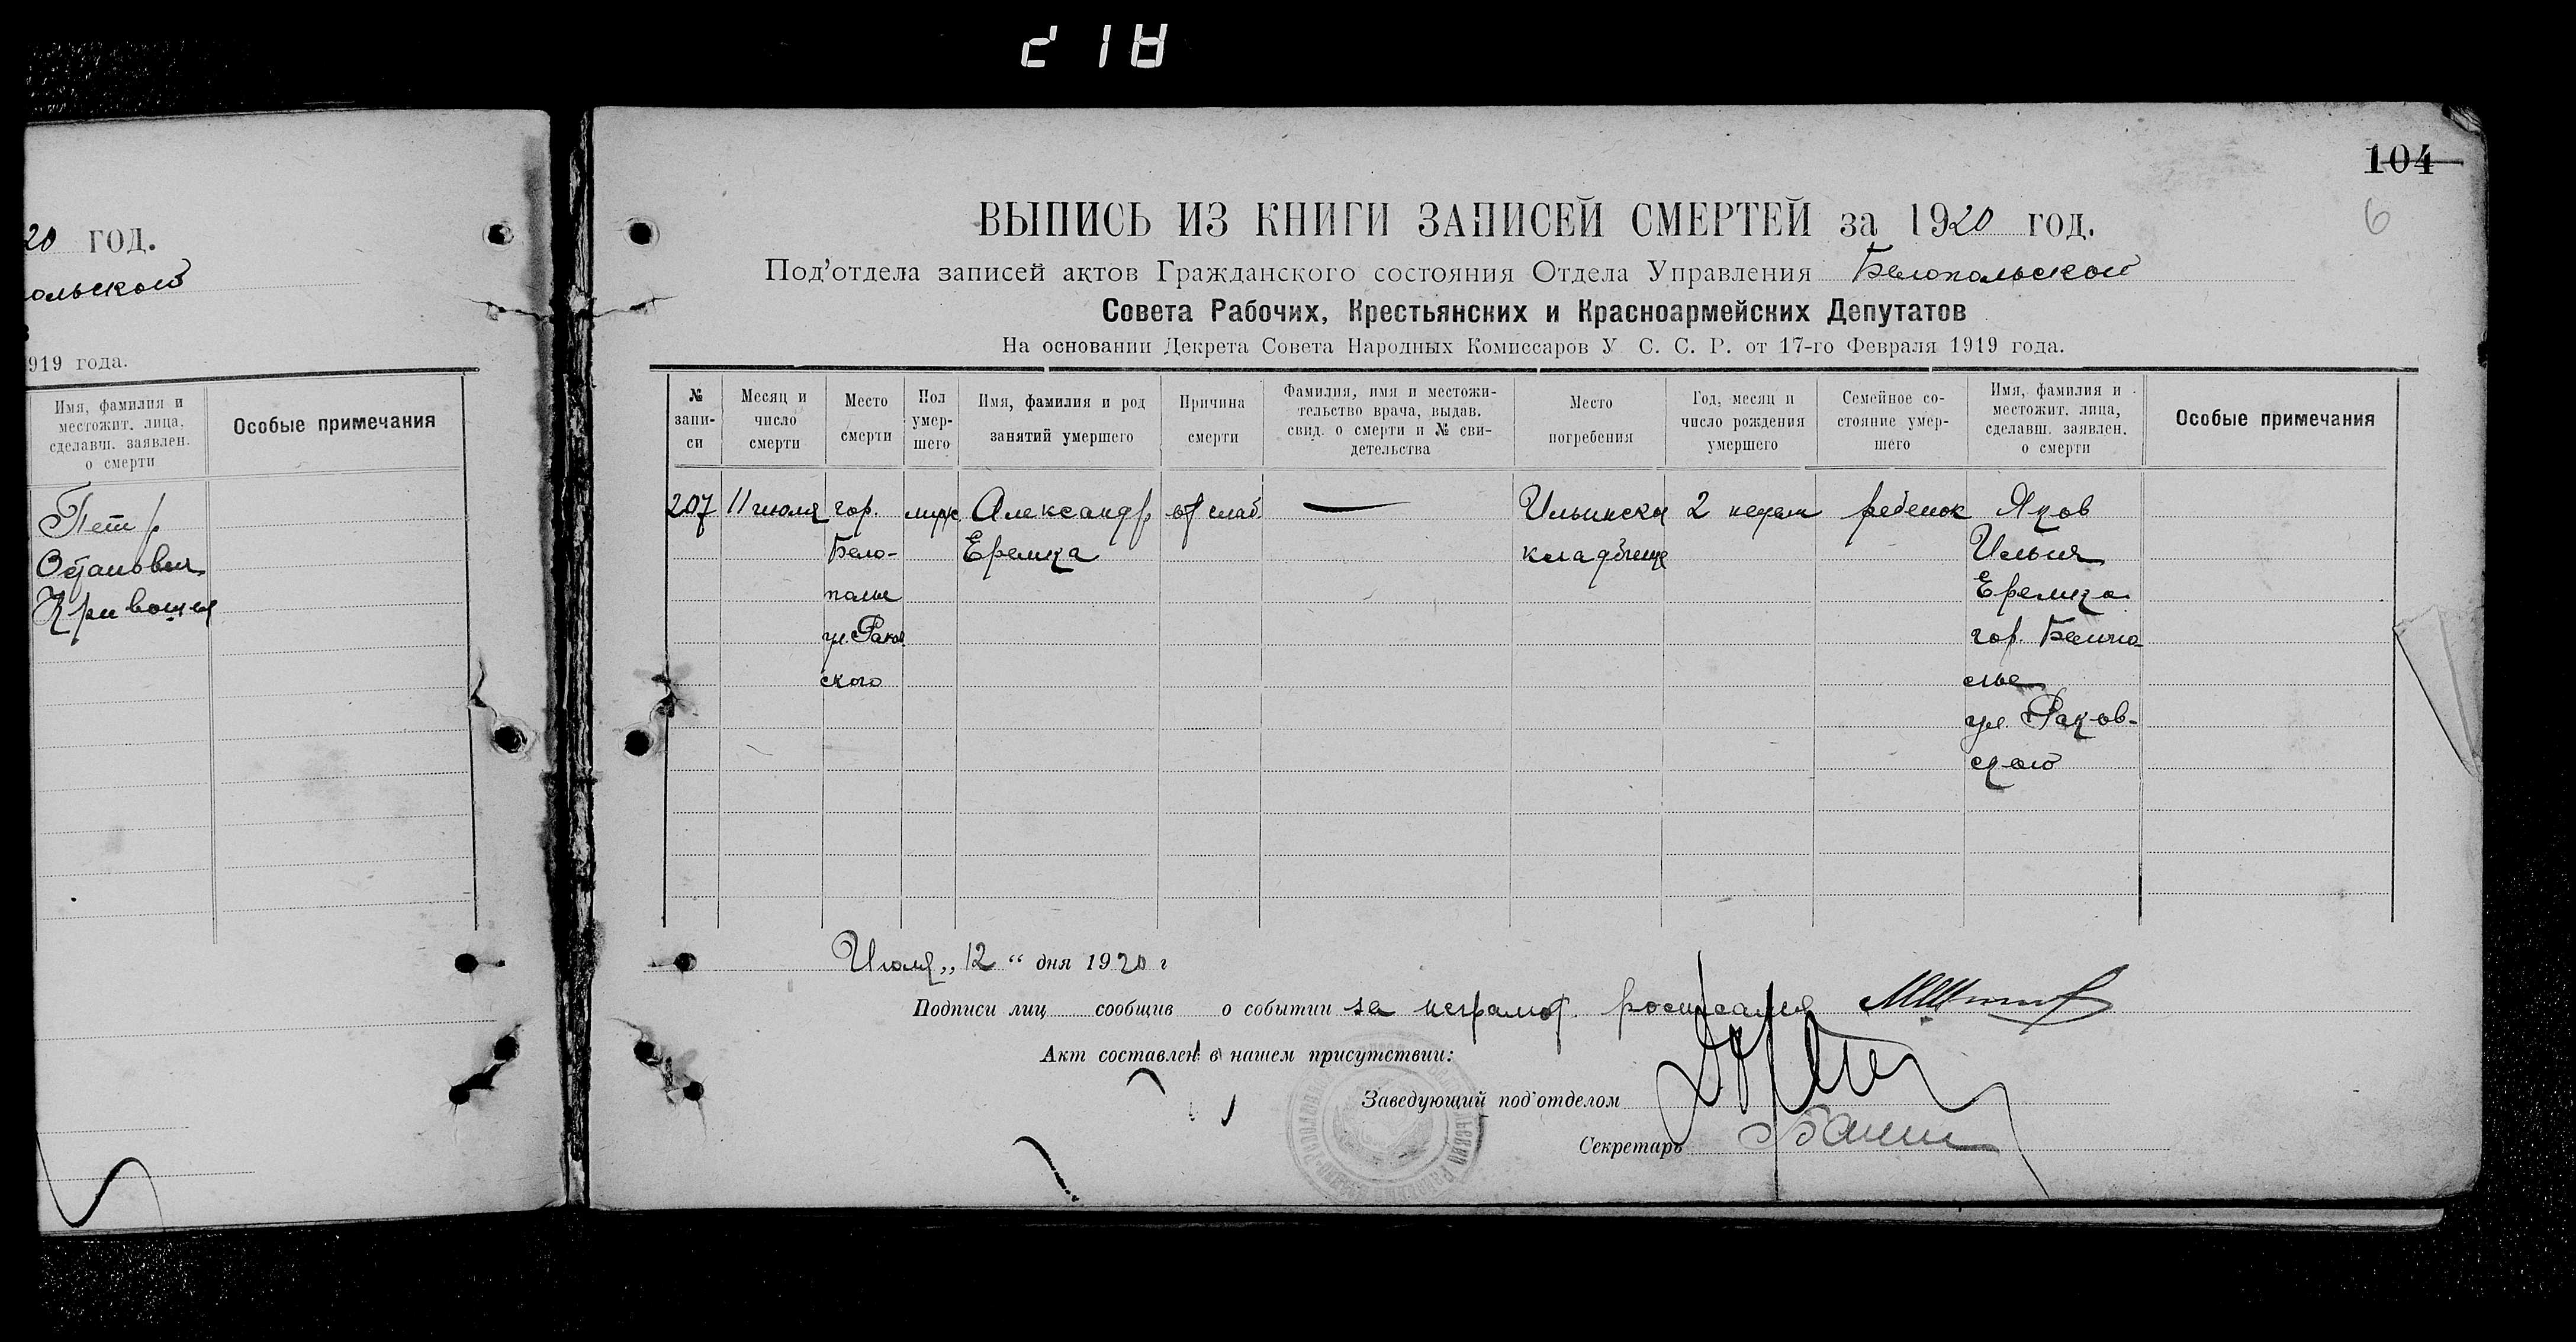 218
20 год.
ольской
919 года.
Имя, фамилия и местожит. лица, сделавш. заявлен. о смерти
Особые примечания
Петр
Кривошея
104
6
ВЫПИСЬ ИЗ КНИГИ ЗАПИСЕЙ СМЕРТЕЙ за 1920 год.
Под'отдела записей актов Гражданского состояния Отдела Управления Белопольской
Совета Рабочих, Крестьянских и Красноармейских Депутатов
На основании Декрета Совета Народных Комиссаров У. С. С. Р. от 17-го Февраля 1919 года.
№ запи-си
Месяц и число смерти
Место смерти
Пол умер-шего
Имя, фамилия и род занятий умершего
Причина смерти
Фамилия, имя и местожи-тельство врача, выдав. свид. о смерти и № сви-детельства
Место погребения
Год, месяц и число рождения умершего
Семейное со-стояние умер-шего
Имя, фамилия и местожит. лица, сделавш. заявлен. о смерти
Особые примечания
207 11 июля гор. муж Александр от слаб. — Ильинско 2 недели ребенок Яков
Бело- Еремка кладбище Илья
полье Еремка
ул. Раков гор. Белопо
ского лье
ул. Раков-
ского
Июля „ 12 “ дня 1920 г
Подписи лиц сообщив о событии за неграмот. росписался
Акт составлен в нашем присутствии:
Заведующий под'отделом
Секретарь